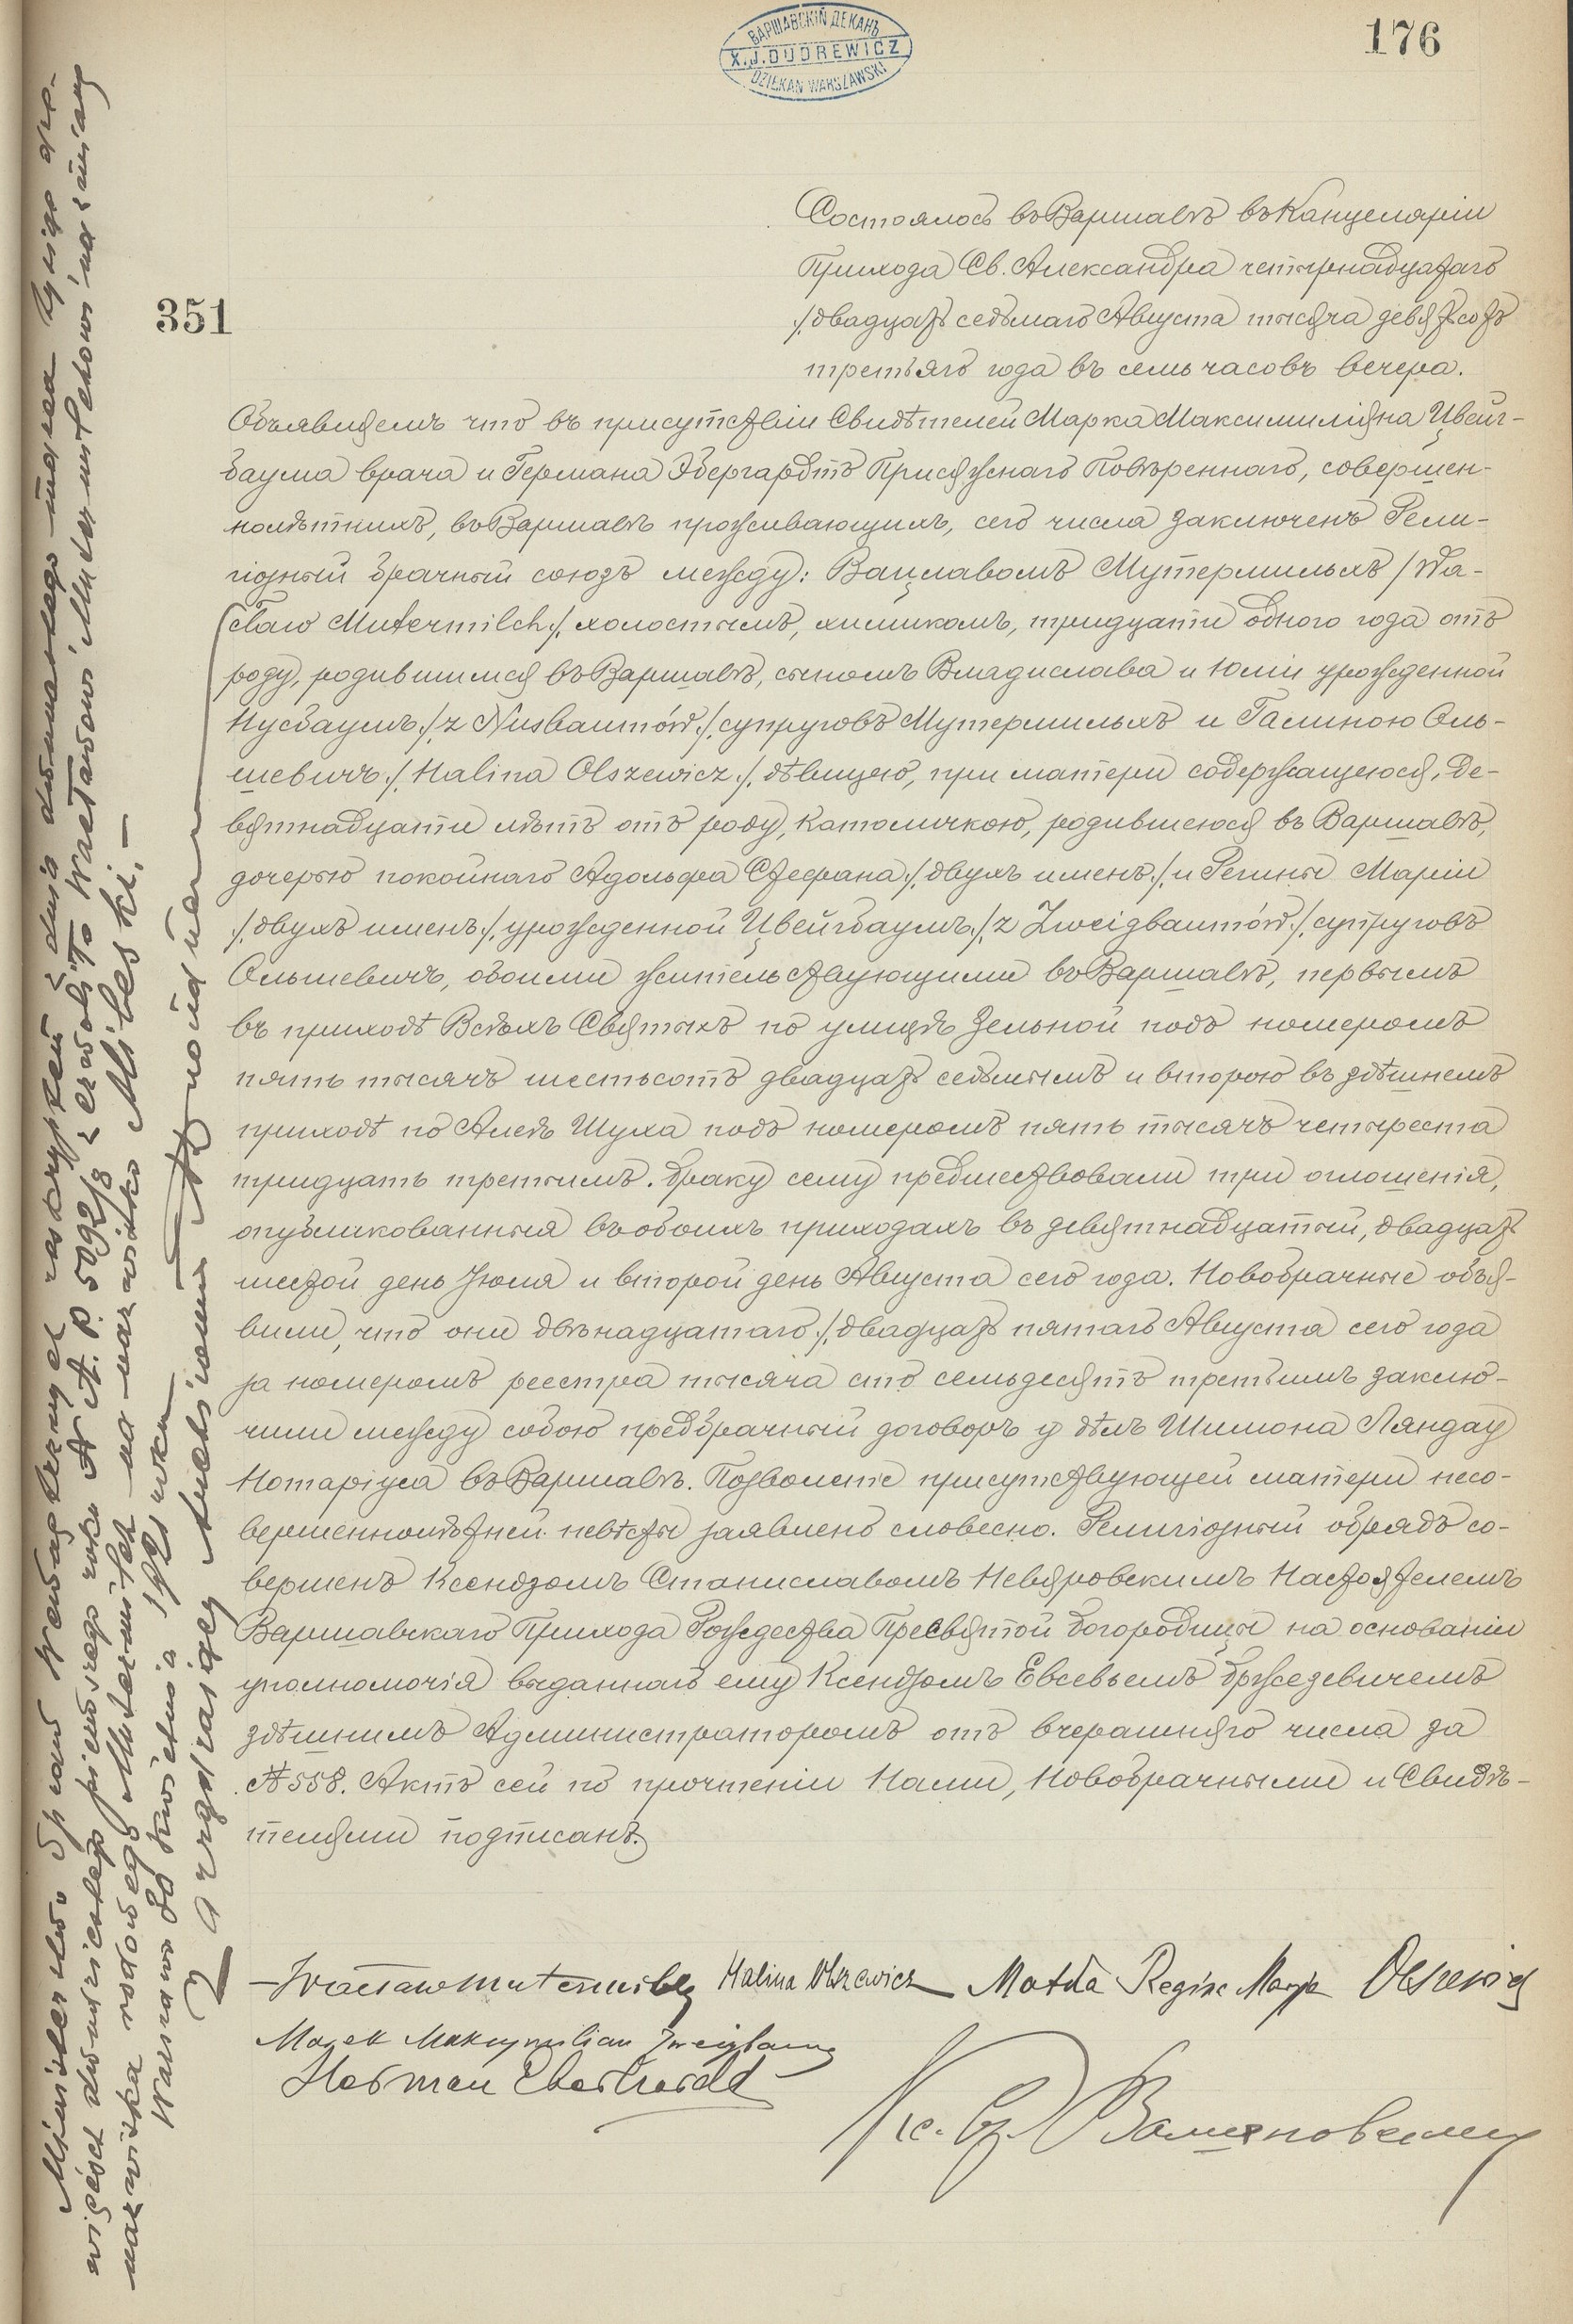 ВАРШАВСКІЙ ДЕКАНЪ
X.J.DUDREWICZ
DZIEKAN WARSZAWSKI
176
351
Состоялось въ Варшавѣ въ Канцеляріи
Прихода Св. Александра четырнадцатаго
/двадцать седьмаго Августа тысяча девятьсотъ
третьяго года въ семь часовъ вечера.
Объявляемъ что въ присутствіи Свидѣтелей Марка Максимиліяна Цвейг-
баума врача и Германа Эбергардтъ Присяжнаго Повѣреннаго, совершен-
нолѣтнихъ, въ Варшавѣ проживающихъ, сего числа заключенъ Рели-
гіозный брачный союзъ между: Вацлавомъ Мутермильхъ /Wa-
cław Mutermilch./ холостымъ, химикомъ, тридцати одного года отъ
роду, родившимся въ Варшавѣ, сыномъ Владислава и Юліи урожденной
Нусбаумъ./z Nusbaumów./ супруговъ Мутермильхъ и Галиною Оль-
шевичъ./Halina Olszewicz./ дѣвицею, при матери содержащеюся, де-
вятнадцати лѣтъ отъ роду, католичкою, родившеюся въ Варшавѣ,
дочерью покойнаго Адольфа Стефана./двухъ именъ./ и Регины Маріи
./двухъ именъ./ урожденной Цвейгбаумъ./z Zweigbaumów./ супруговъ
Ольшевичъ, обоими жительствующими въ Варшавѣ, первымъ
въ приходѣ Всѣхъ Святыхъ по улицѣ Зельной подъ номеромъ
пять тысячъ шестьсотъ двадцать седьмымъ и второю въ здѣшнемъ
приходѣ по Алеѣ Шуха подъ номеромъ пять тысячъ четыреста
тридцать третьимъ. Браку сему предшествовали три оглошенія,
опубликованныя въ обоихъ приходахъ въ девятнадцатый, двадцать
шестой день Іюля и второй день Августа сего года. Новобрачные объя-
вили, что они двѣнадцатаго./двадцать пятаго Августа сего года
за номеромъ реестра тысяча сто семьдесятъ третьимъ заклю-
чили между собою предбрачный договоръ у дѣлъ Шимона Ляндау
Нотаріуса въ Варшавѣ. Позволеніе присутствующей матери несо-
вершеннолѣтней невѣсты заявлено словесно. Религіозный обрядъ со-
вершенъ Ксендзомъ Станиславомъ Невяровскимъ Настоятелемъ
Варшавскаго Прихода Рождества Пресвятой Богородицы на основаніи
уполномочія выданнаго ему Ксендзомъ Евсевьемъ Бржезевичемъ
здѣшнимъ Администраторомъ отъ вчерашняго числа за
№ 558. Актъ сей по прочтеніи Нами, Новобрачными и Свидѣ-
телями подписанъ.
Wacław Mutermilch Halina Olszewicz Matka Regina Marja Olszewicz
Marek Maksymilian Zweigbaum
Herman Eberhardt
Кс.
Ministerstwo Spraw Wewnętrznych reskryptem z dnia dwunastego marca tysiąc dzie-
więćset dwudziestego pierwszego roku № A. P. 5092/8 zezwoliło Wacławowi Mutermilchowi na zmianę
nazwiska rodowego Mutermilch na nazwisko Milbeski. —
Warszawa 30 kwietnia 1921 roku
Zarządzający Archiwum